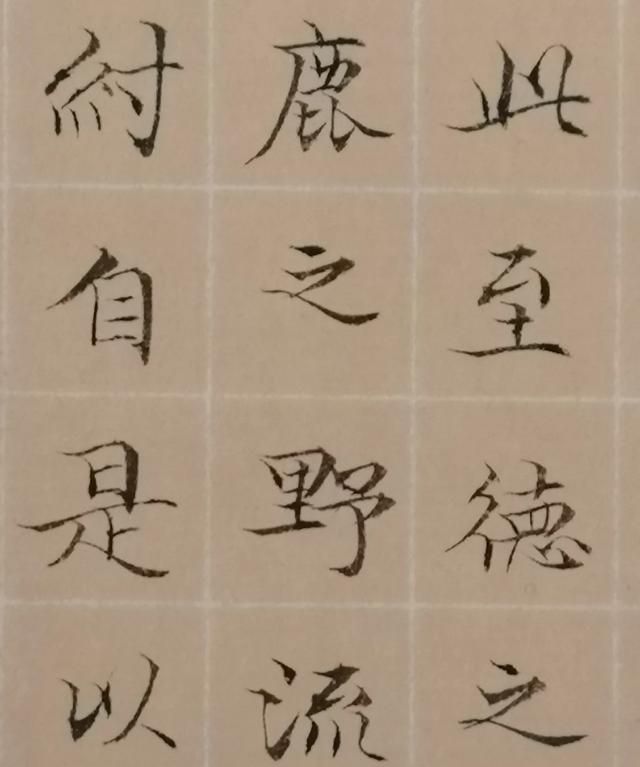 此至德之
鹿之野流
紂自是以